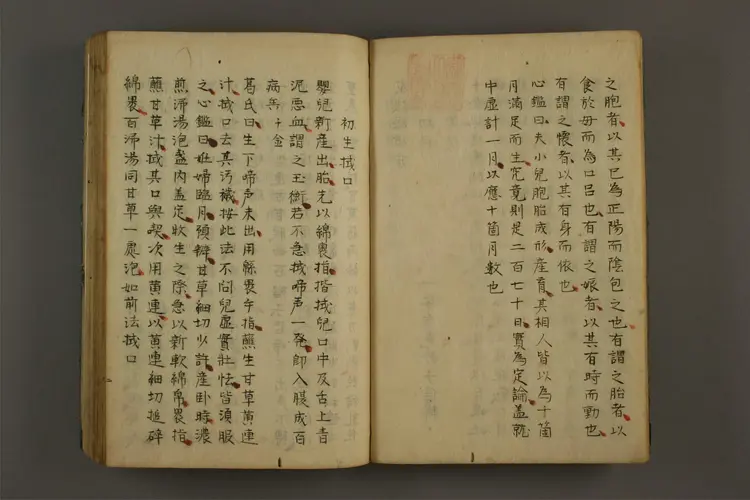 之胞者以其已為正陽而陰包之也有謂之胎者以
食於母而為口呂也有謂之娠者以其有時而動也
有謂之懐者以其有身而依也
心鑑曰夫小兒胞胎成形産育其相人皆以為十箇
月滿足而生究竟則是二百七十日實為定論蓋就
中虚計一月以應十箇月數也
初生拭口
嬰兒新産出胎先以綿裹指揩拭兒口中及舌上青
泥悪血謂之玉衡若不急拭啼声一發即入腹成百
病矣千金
葛氏曰生下啼声未出用緜裹手指蘸生甘草黄連
汁拭口去其汚穢按此法不問兒虚實壮怯皆須服
之心鑑曰妊婦臨月預辦甘草細切少許産卧時濃
煎沸湯泡盞内蓋定收生之際急以新軟綿帛裹指
蘸甘草汁拭其口與喫次用黄連以黄連細切搥碎
綿裹百沸湯同甘草一處泡如前法拭口